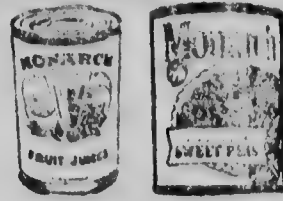 MONARCH
FRUIT JUICES
Monarch
SWEET PEAS